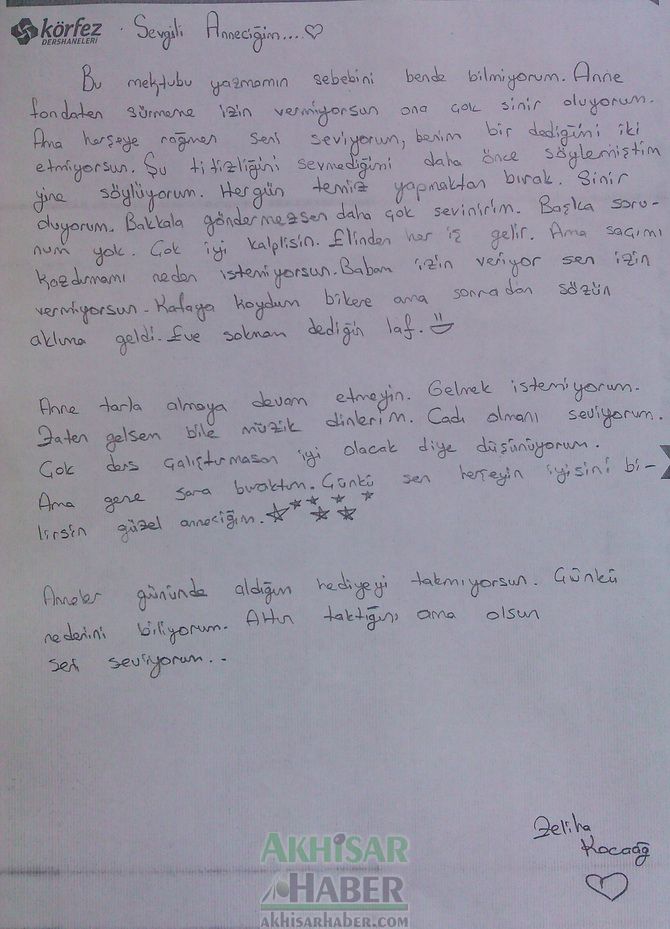 körfez
DERSHANELERİ
Sevgili Anneciğim...♡
Bu mektubu yazmamın sebebini bende bilmiyorum. Anne
fondaten sürmeme izin vermiyorsun ona çok sinir oluyorum.
Ama herşeye rağmen seni seviyorum, benim bir dediğimi iki
etmiyorsun. Şu titizliğini sevmediğimi daha önce söylemiştim
yine söylüyorum. Hergün temiz yapmaktan bırak. Sinir
oluyorum. Bakkala göndermezsen daha çok sevinirim. Başka soru-
num yok. Çok iyi kalplisin. Elinden her iş gelir. Ama saçımı
kazdırmamı neden istemiyorsun. Babam izin veriyor sen izin
vermiyorsun. Kafaya koydum bikere ama sonradan sözün
aklıma geldi. Eve sokmam dediğin laf.
Anne tarla almaya devam etmeyin. Gelmek istemiyorum.
Zaten gelsem bile müzik dinlerim. Cadı olmanı seviyorum.
Çok ders çalıştırmasan iyi olacak diye düşünüyorum.
Ama gene sana bıraktım. Çünkü sen herşeyin iyisini bi-
lirsin güzel anneciğim.
Anneler gününde aldığım hediyeyi takmıyorsun. Çünkü
nedenini biliyorum. Altın taktığını ama olsun
seni seviyorum..
Zeliha
Kocaağ
AKHİSAR
HABER
AKHISARHABER.COM